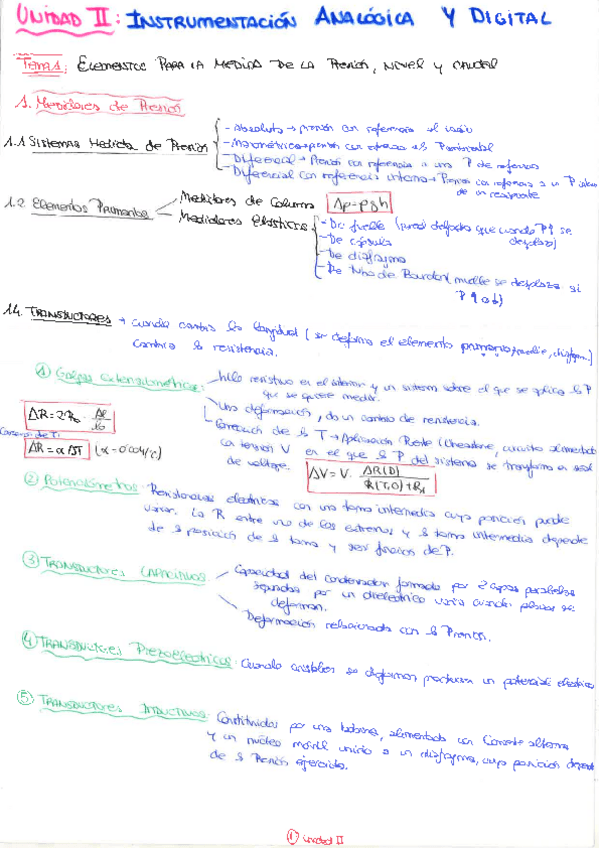 UNIDAD II: INSTRUMENTACIÓN ANALÓGICA Y DIGITAL
Tema 1: ELEMENTOS PARA LA MEDIDA DE LA PRESIÓN, NIVEL Y CAUDAL
1. Medidores de Presión
1.1 Sistemas Medida de Presión
- Absoluta → presión con referencia al vacío
- Manométrica → presión con referencia a la P ambiental
- Diferencial → Presión con referencia a una P de referencia
- Diferencial con referencia interna → Presión con referencia a un P interna
de un recipiente
1.2 Elementos Primarios
- Medidores de Columna Δp = ρgh
- Medidores Elásticos
- De fuelle (pared delgada que cuando P↑ se
desplaza)
- De cápsula
- De diafragma
- De tubo de Bourdon (muelle se desplaza si
P↑ o ↓)
1.4. TRANSDUCTORES → cuando cambia la longitud (se deforma el elemento primario, muelle, diafragma)
cambia la resistencia.
① Galgas extensiométricas:
- hilo resistivo en el interior y un sistema sobre el que se aplica la P
que se quiere medir.
- Una deformación, da un cambio de resistencia.
- Corrección de la T → Aplicación Puente Wheatstone, circuito alimentado
con tensión V en el que la P del sistema se transforma en señal
de voltaje.
ΔR = 2R₀ · Δl/l₀
Corrección de T:
ΔR = α ΔT (α = 0'004/°C)
ΔV = V · ΔR(D) / R(T,0)+R₁
② Potenciométricos: Resistencias eléctricas con una toma intermedia cuya posición puede
variar. La R entre uno de los extremos y la toma intermedia depende
de la posición de la toma y será función de P.
③ TRANSDUCTORES CAPACITIVOS
- Capacidad del condensador formado por 2 capas paralelas
separadas por un dieléctrico varía cuando placas se
deforman.
- Deformación relacionada con la Presión.
④ TRANSDUCTORES Piezoeléctricos: Cuando cristales se deforman producen un potencial eléctrico
⑤ TRANSDUCTORES INDUCTIVOS: Constituidos por una bobina, alimentada con Corriente alterna
y un núcleo móvil unido a un diafragma, cuya posición depende
de la Presión ejercida.
① unidad II